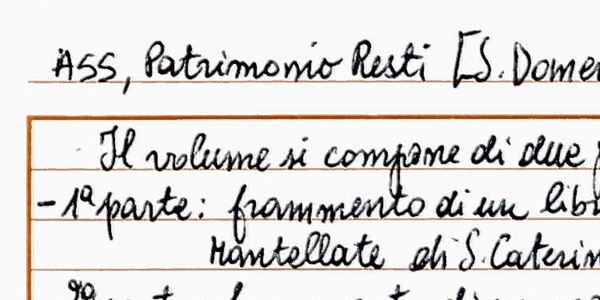 ASS, Patrimonio Resti [S. Dome
Il volume si compone di due
- 1ª parte: frammento di un libr
Mantellate di S. Caterin
2ª